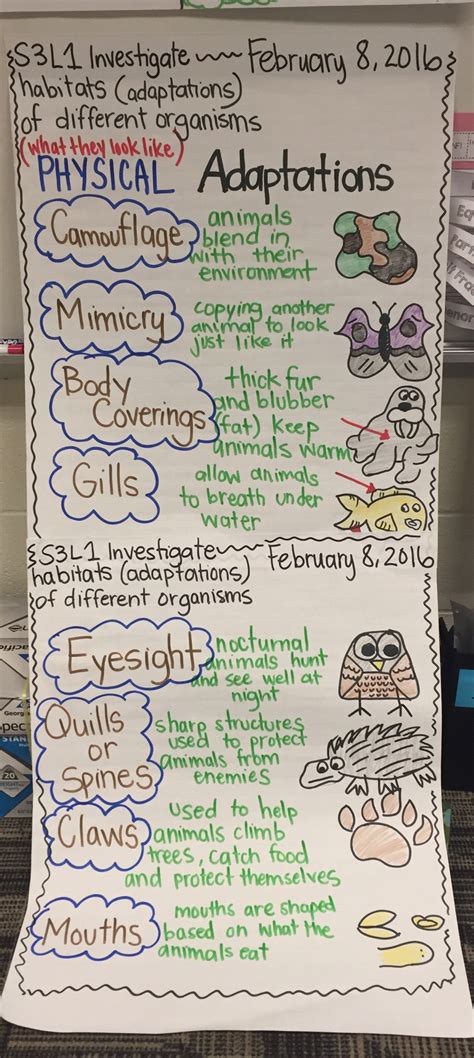 S3L1 Investigate February 8, 2016
habitats (adaptations)
of different organisms
(what they look like)
PHYSICAL Adaptations
Camouflage
animals
blend in
with their
environment
Mimicry
copying another
animal to look
just like it
Body
Coverings
thick fur
and blubber
(fat) keep
animals warm
Gills
allow animals
to breath under
water
S3L1 Investigate February 8, 2016
habitats (adaptations)
of different organisms
Eyesight
nocturnal
animals hunt
and see well at
night
Quills
or
Spines
sharp structures
used to protect
animals from
enemies
Claws
used to help
animals climb
trees, catch food
and protect themselves
Mouths
mouths are shaped
based on what the
animals eat